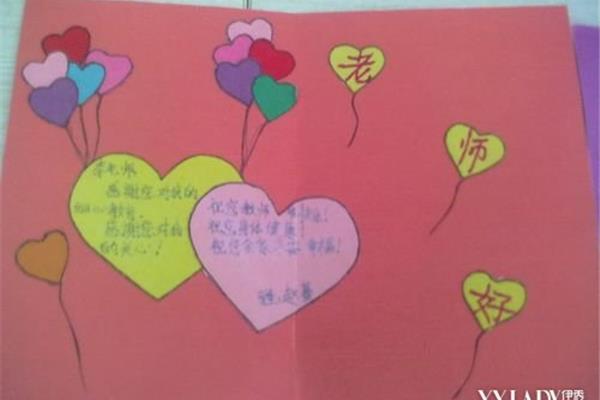 老
师
好
李老师
感谢您对我的
教育。
感谢您对我
的关心!
祝您教师节快乐!
祝您身体健康!
祝您全家平安幸福!
YXLADY伊秀